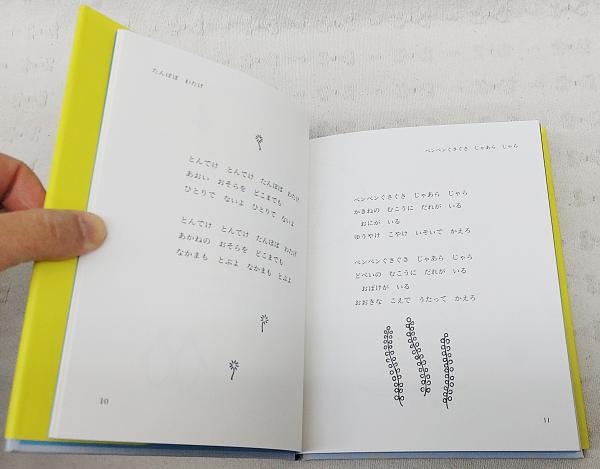 たんぽぽ　わたげ
とんでけ　とんでけ　たんぽぽ　わたげ
あおい　おそらを　どこまでも
ひとりで　ないよ　ひとりで　ないよ
とんでけ　とんでけ　たんぽぽ　わたげ
あかねの　おそらを　どこまでも
なかまも　とぶよ　なかまも　とぶよ
10
ペンペンぐさぐさ　じゃあら　じゃら
ペンペンぐさぐさ　じゃあら　じゃら
かきねの　むこうに　だれが　いる
おにが　いる
ゆうやけ　こやけ　いそいで　かえろ
ペンペンぐさぐさ　じゃあら　じゃら
どべいの　むこうに　だれが　いる
おばけが　いる
おおきな　こえで　うたって　かえろ
11